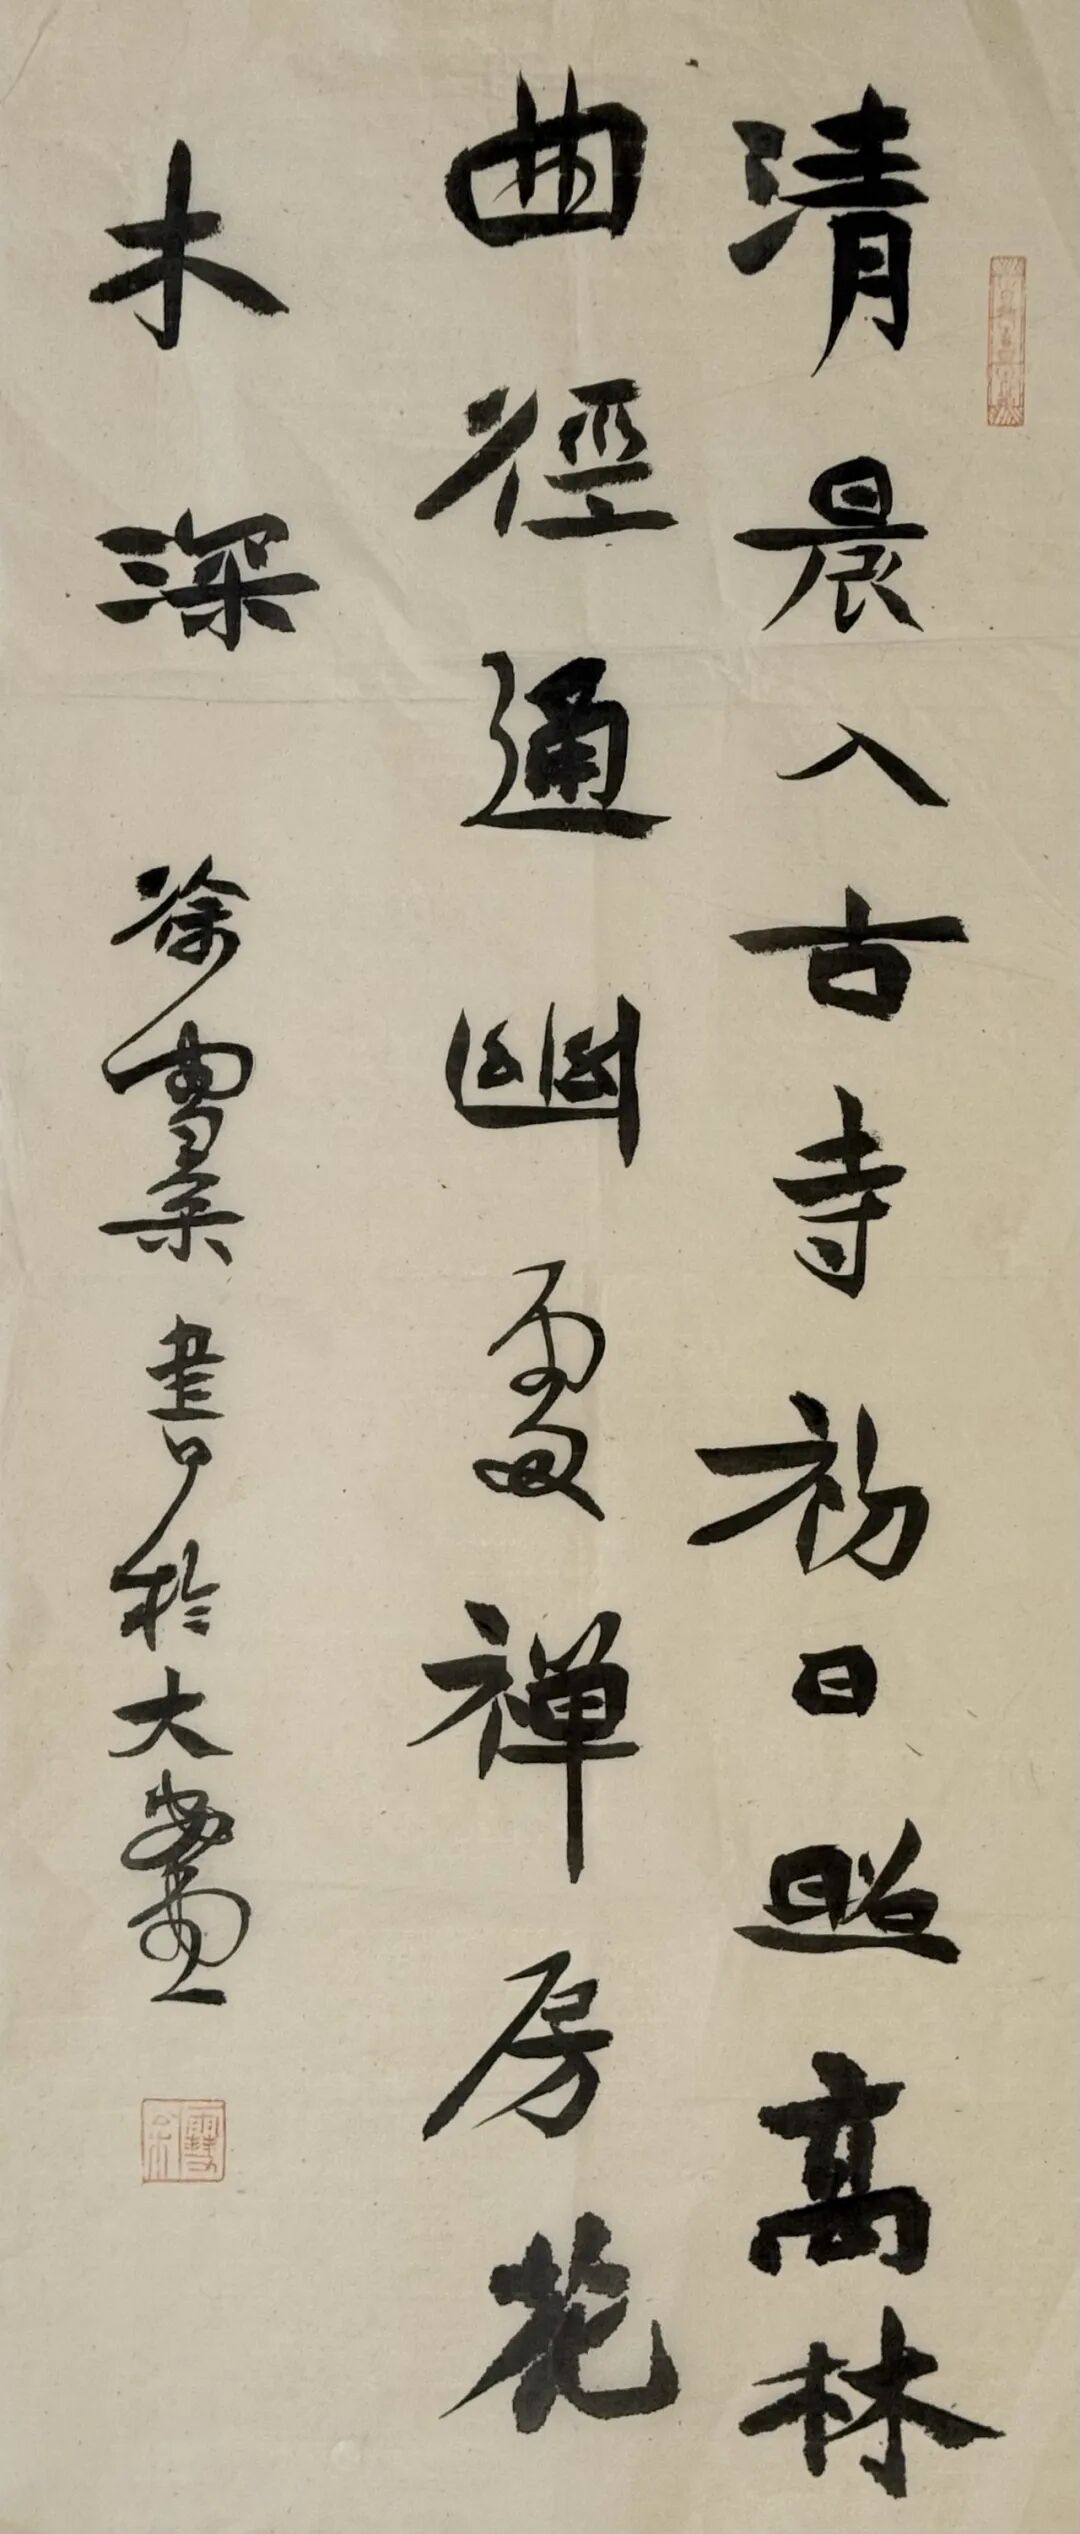 清晨入古寺初日照高林
曲徑通幽處禅房花
木深
徐雲集書於大